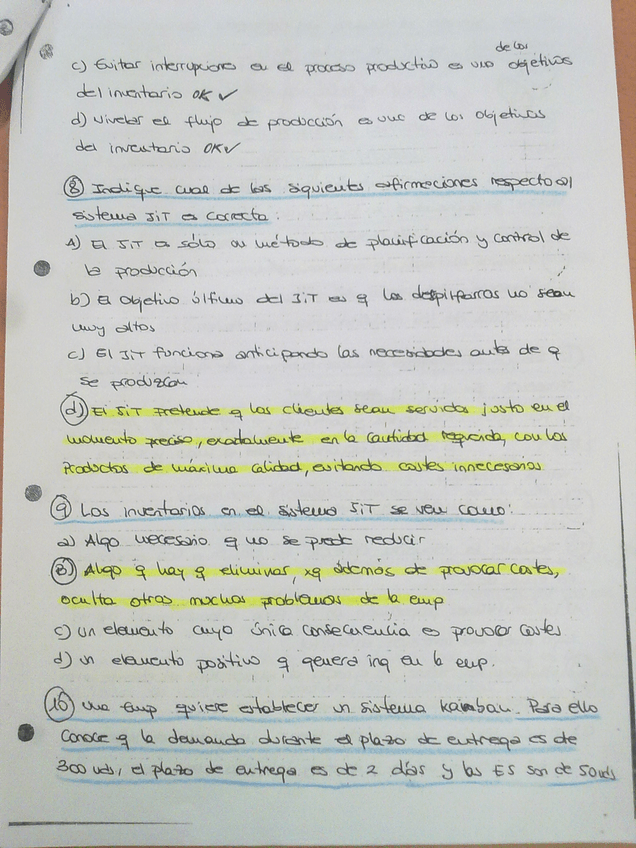 de los
c) Evitar interrupciones en el proceso productivo es uno objetivos
del inventario OK ✓
d) Nivelar el flujo de producción es uno de los objetivos
del inventario OK✓
⑧ Indique cual de las siguientes afirmaciones respecto al
sistema JIT es correcta:
A) El JIT es sólo un método de planificación y control de
la producción
b) El objetivo último del JIT es q los despilfarros no sean
muy altos
c) El JIT funciona anticipando las necesidades antes de q
se produzcan
d) El JIT pretende q los clientes sean servidos justo en el
momento preciso, exactamente en la cantidad requerida, con los
Productos de máxima calidad, evitando costes innecesarios
⑨ Los inventarios en el sistema JIT se ven como:
a) Algo necesario q no se puede reducir
B) Algo q hay q eliminar, xq además de provocar costes,
oculta otros muchos problemas de la emp
c) Un elemento cuya única consecuencia es provocar costes
d) un elemento positivo q genera ing en la emp.
Una Emp quiere establecer un sistema kamban. Para ello
conoce q la demanda durante el plazo de entrega es de
300 uds, el plazo de entrega es de 2 días y las ES son de 50uds